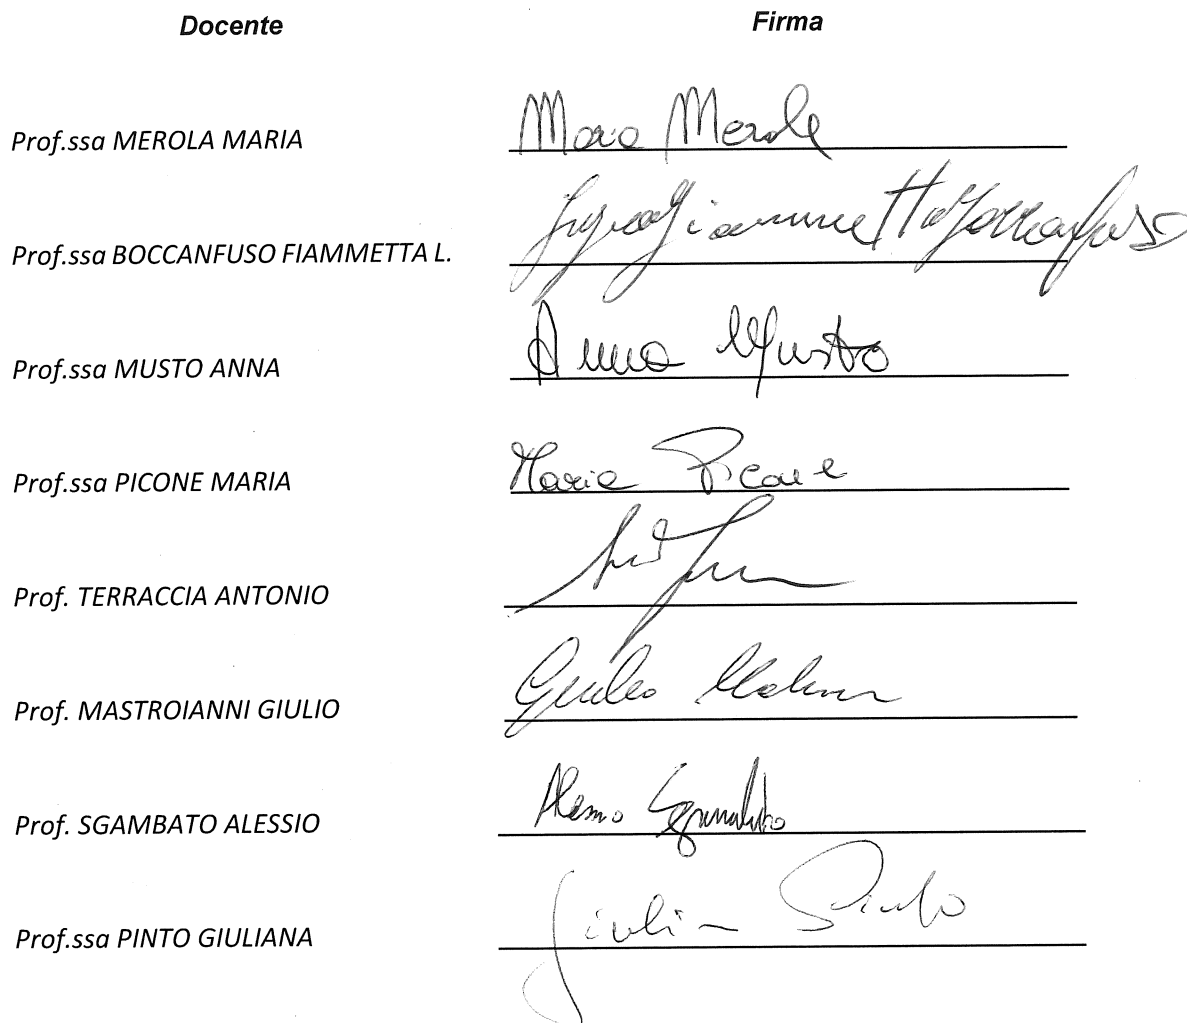 Docente Firma
Prof.ssa MEROLA MARIA Maria Merola
Prof.ssa BOCCANFUSO FIAMMETTA L.
Prof.ssa MUSTO ANNA Anna Musto
Prof.ssa PICONE MARIA Maria Picone
Prof. TERRACCIA ANTONIO
Prof. MASTROIANNI GIULIO Giulio
Prof. SGAMBATO ALESSIO Alessio Sgambato
Prof.ssa PINTO GIULIANA Giuliana Pinto